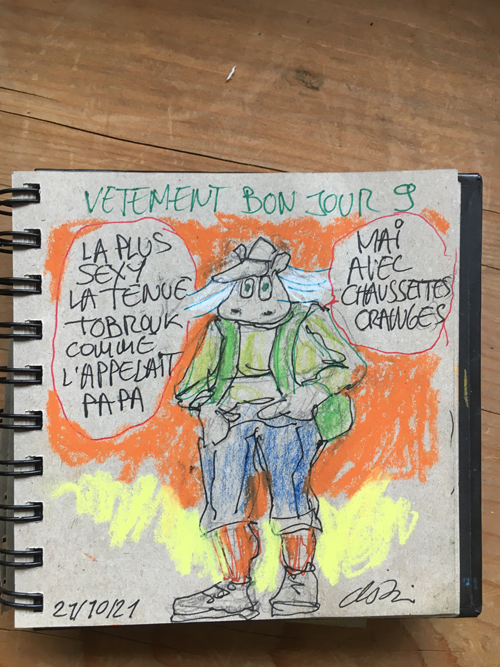 VETEMENT BON JOUR 9
LA PLUS
SEXY
LA TENUE
TOBROUK
COMME
L'APPELAIT
PAPA
MAI
AVEC
CHAUSSETTES
ORANGES
21/10/21